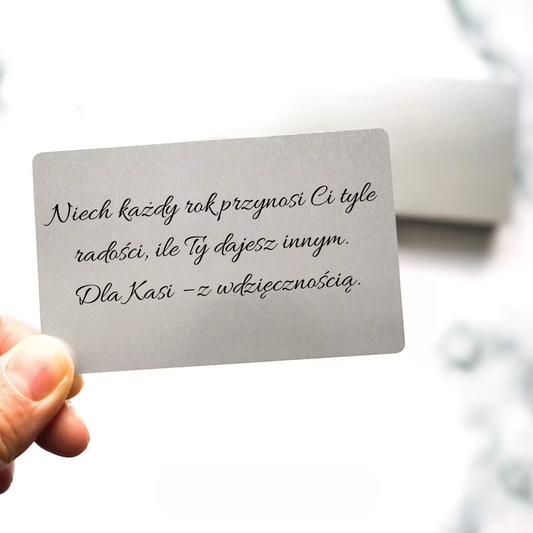 Niech każdy rok przynosi Ci tyle
radości, ile Ty dajesz innym.
Dla Kasi – z wdzięcznością.